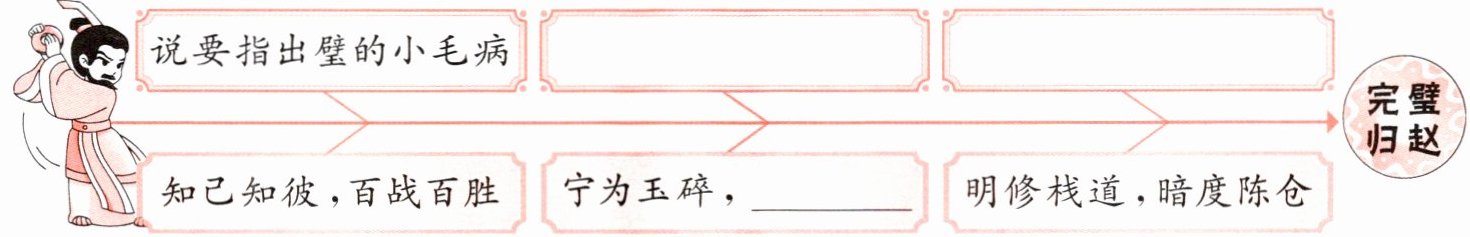 说要指出璧的小毛病
完璧
归赵
知己知彼,百战百胜
宁为玉碎,
明修栈道,暗度陈仓